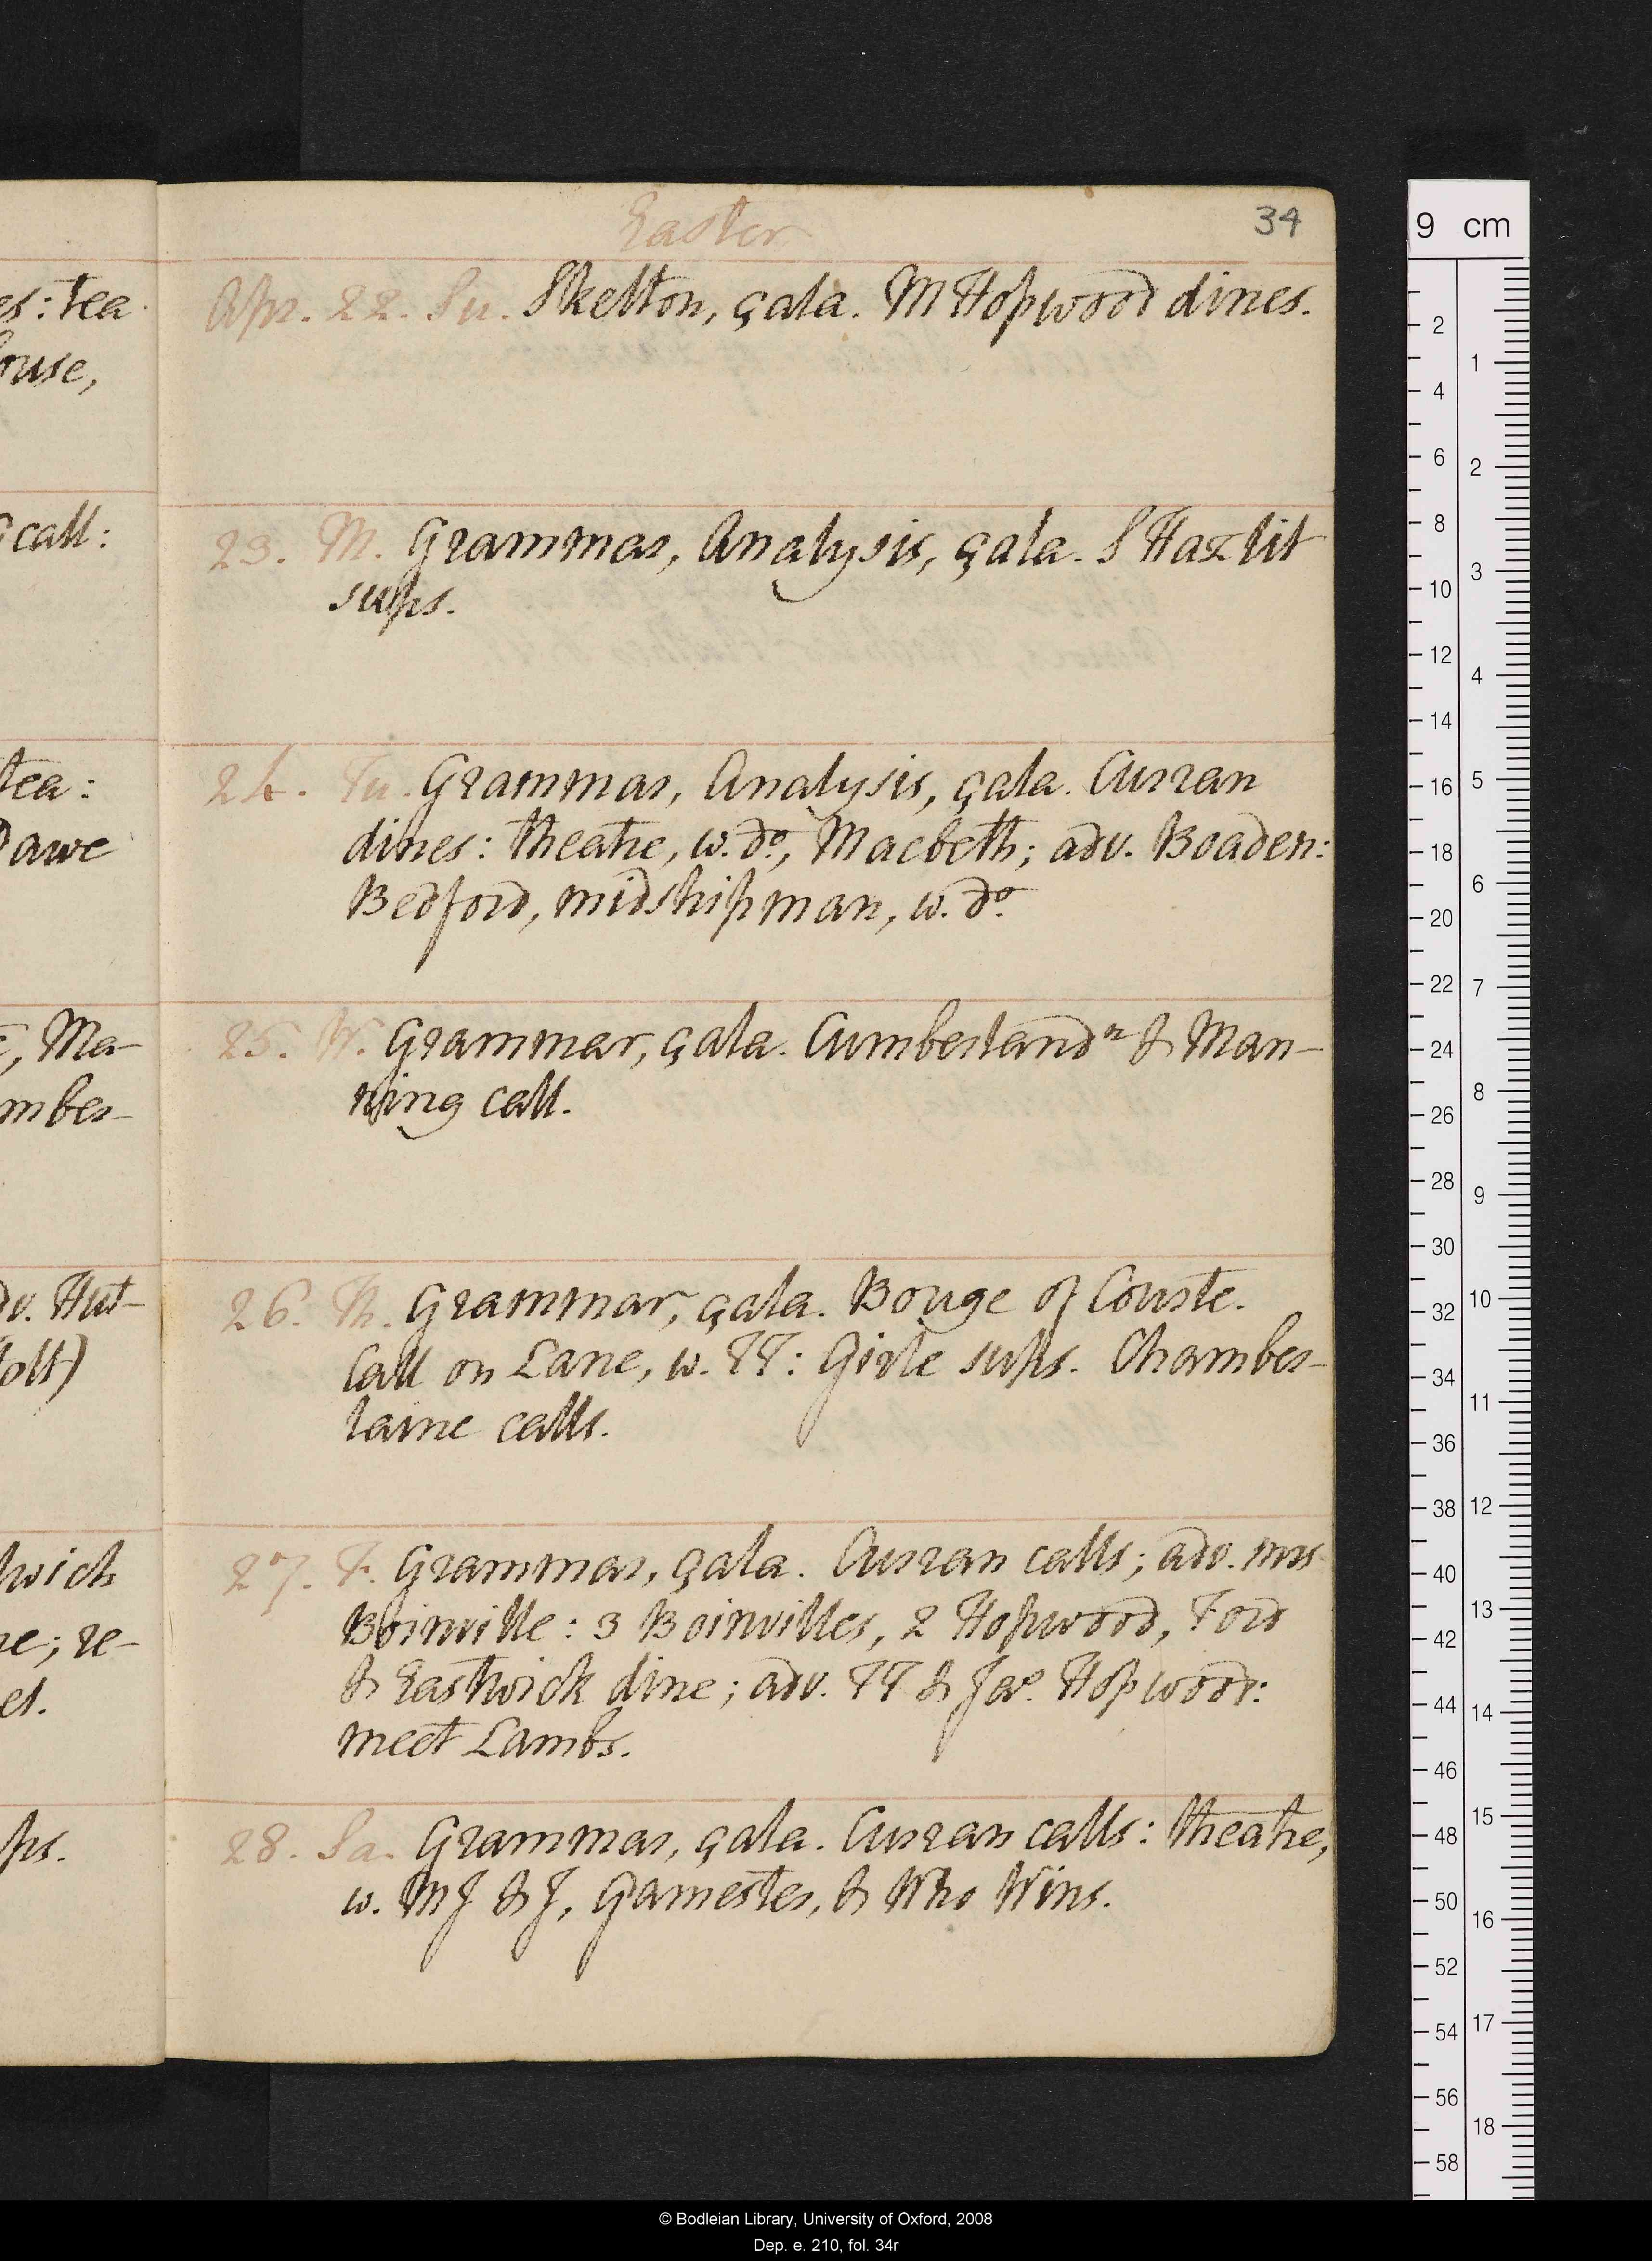 Easter
34
Apr. 22. Su. Skelton, çala. M Hopwood dines.
23. M. Grammar, Analysis, çala. S Hazlit
sups.
24. Tu. Grammar, Analysis, çala. Curran
dines: theatre, w. do., Macbeth; adv. Boaden:
Bedford, midshipman, w. do.
25. W. Grammar, çala. Cumberland & Man-
ning call.
26. Th. Grammar, çala. Bouge of Courte.
Call on Lane, w. TT: Girle sups. Chamber-
laine calls.
27. F. Grammar, çala. Curran calls; adv. mrs
Boinville: 3 Boinvilles, 2 Hopwood, Ford
& Eastwick dine; adv. TT & Jas. Hopwood:
meet Lambs.
28. Sa. Grammar, çala. Curran calls: theatre,
w. MJ & J, Gamester, & Who Wins.
es: tea
ouse,
call:
tea:
Dawe
, Ma-
mber-
dv. Hut-
olt)
wich
ne; re-
et.
ps.
9 cm
2
4
6
8
10
12
14
16
18
20
22
24
26
28
30
32
34
36
38
40
42
44
46
48
50
52
54
56
58
1
2
3
4
5
6
7
8
9
10
11
12
13
14
15
16
17
18
© Bodleian Library, University of Oxford, 2008
Dep. e. 210, fol. 34r